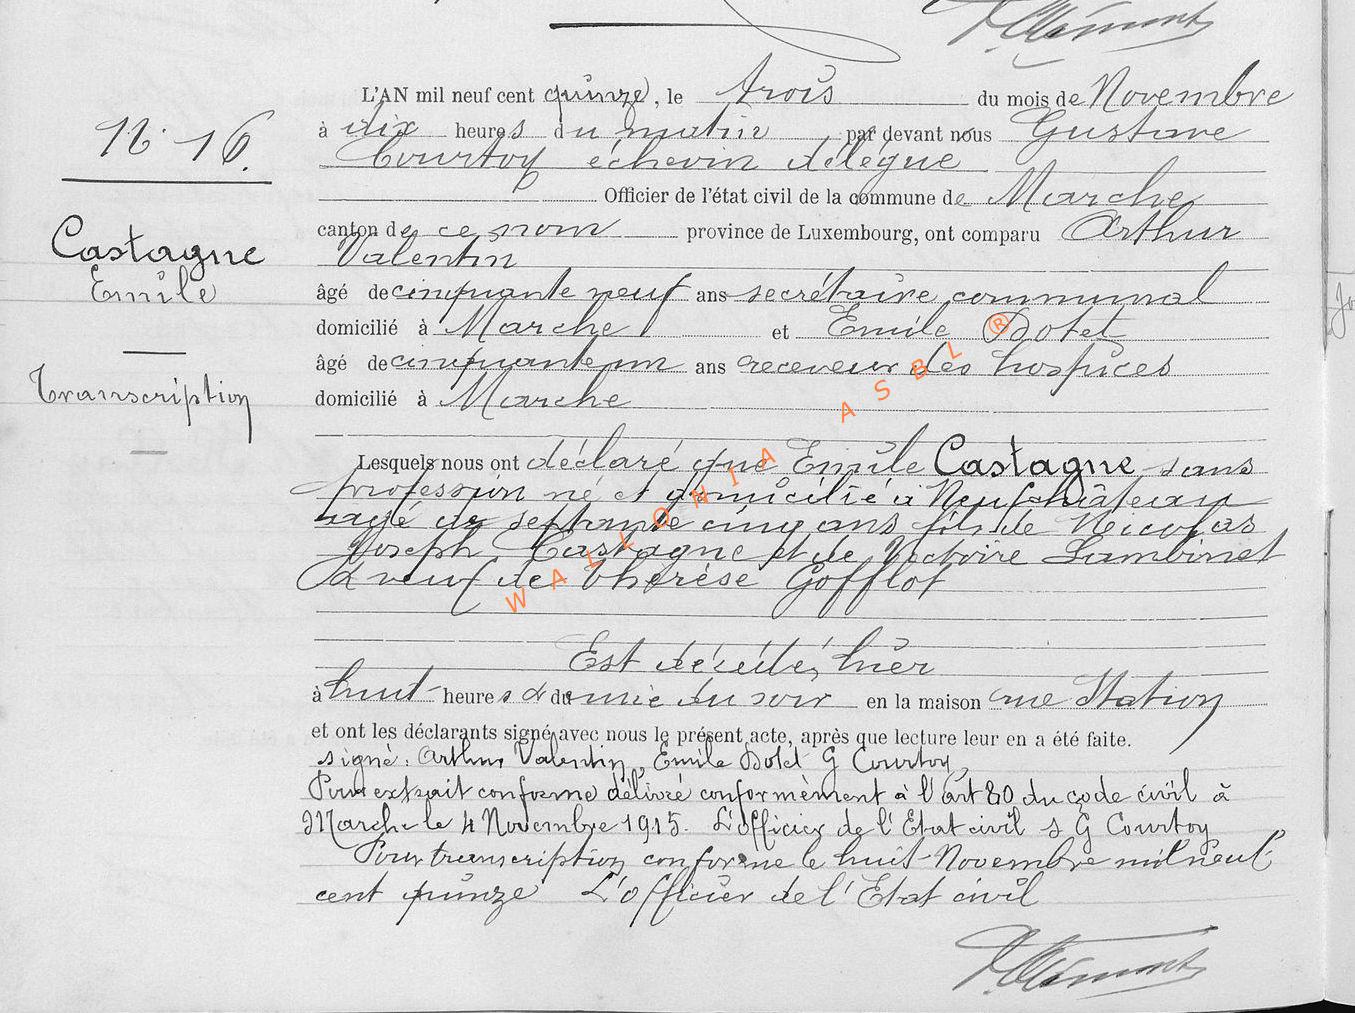 L'AN mil neuf cent quinze, le trois du mois de Novembre
à dix heures du matin par devant nous Gustave
Courtoy échevin délégué
Officier de l'état civil de la commune de Marche
canton de ce nom province de Luxembourg, ont comparu Arthur
Valentin
âgé de cinquante neuf ans secrétaire communal
domicilié à Marche et Emile Dotet
âgé de cinquante un ans receveur des hospices
domicilié à Marche
Lesquels nous ont déclaré que Emile Castagne sans
profession né et domicilié à Neufchâteau
agé de septante cinq ans fils de Nicolas
Joseph Castagne et de Victoire Lambinet
& veuf de Thérèse Gofflot
Est décédé, hier
à huit heures & du mie du soir en la maison rue Station
et ont les déclarants signé avec nous le présent acte, après que lecture leur en a été faite.
signé: Arthur Valentin, Emile Dotet G Courtoy,
Pour extrait conforme délivré conformèment à l'art 80 du code civil à
Marche le 4 Novembre 1915. L'officier de l'Etat civil s G Courtoy
Pour transcription conforme le huit Novembre mil neuf
cent quinze L'officier de l'Etat civil
N. 16.
Castagne
Emile
Transcription
WALLONIA ASBL ®